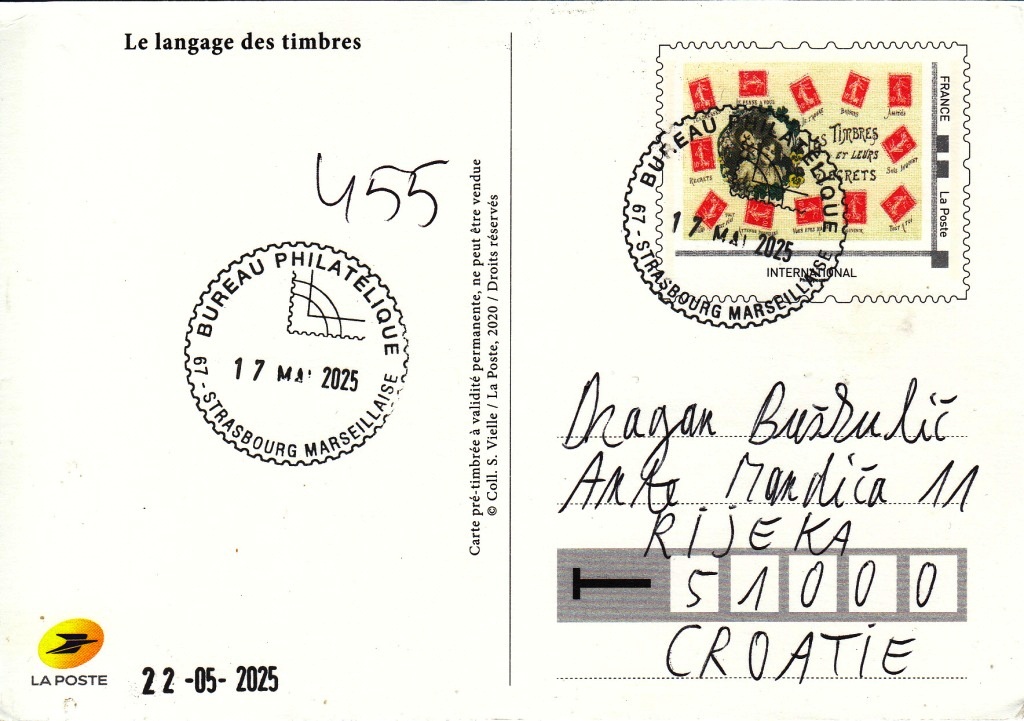 Le langage des timbres
455
BUREAU PHILATÉLIQUE
17 MAI 2025
67 - STRASBOURG MARSEILLAISE
Carte pré-timbrée à validité permanente, ne peut être vendue
© Coll. S. Vielle / La Poste, 2020 / Droits réservés
LA POSTE
22 -05- 2025
FRANCE
La Poste
TIMBRES
ET LEURS
SECRETS
REGRETS
Amitié
INTERNATIONAL
BUREAU PHILATÉLIQUE
17 MAI 2025
67 - STRASBOURG MARSEILLAISE
Dragan Buškulić
Ante Mandića 11
RIJEKA
T 51000
CROATIE